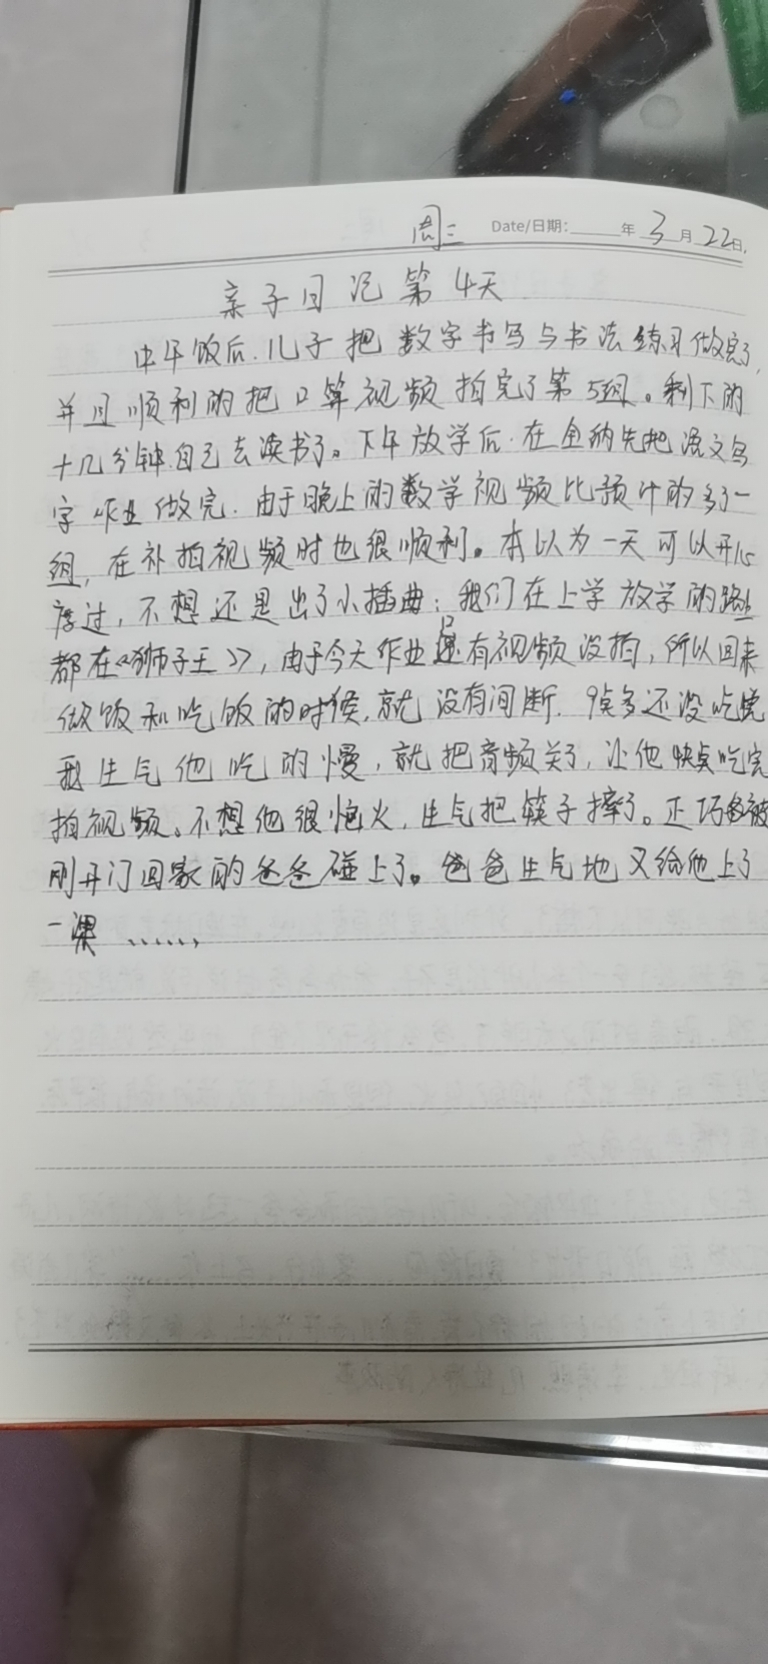 周三 Date/日期: 年 3 月 22 日
亲子日记第4天
中午饭后.儿子把数字书写与书法练习做完了,
并且顺利的把口算视频拍完了第5组。剩下的
十几分钟自己去读书了。下午放学后.在全纳先把语文写
字作业做完.由于晚上的数学视频比预计的多了一
组,在补拍视频时也很顺利。本以为一天可以开心
度过,不想还是出了小插曲;我们在上学放学的路上
都在《狮子王》,由于今天作业还有视频没拍,所以回来
做饭和吃饭的时候,就没有间断.9点多还没吃完
我生气他吃的慢,就把音频关了,让他快点吃完
拍视频。不想他很恼火,生气把筷子摔了。正巧被
刚开门回家的爸爸碰上了。爸爸生气地又给他上了
一课......,